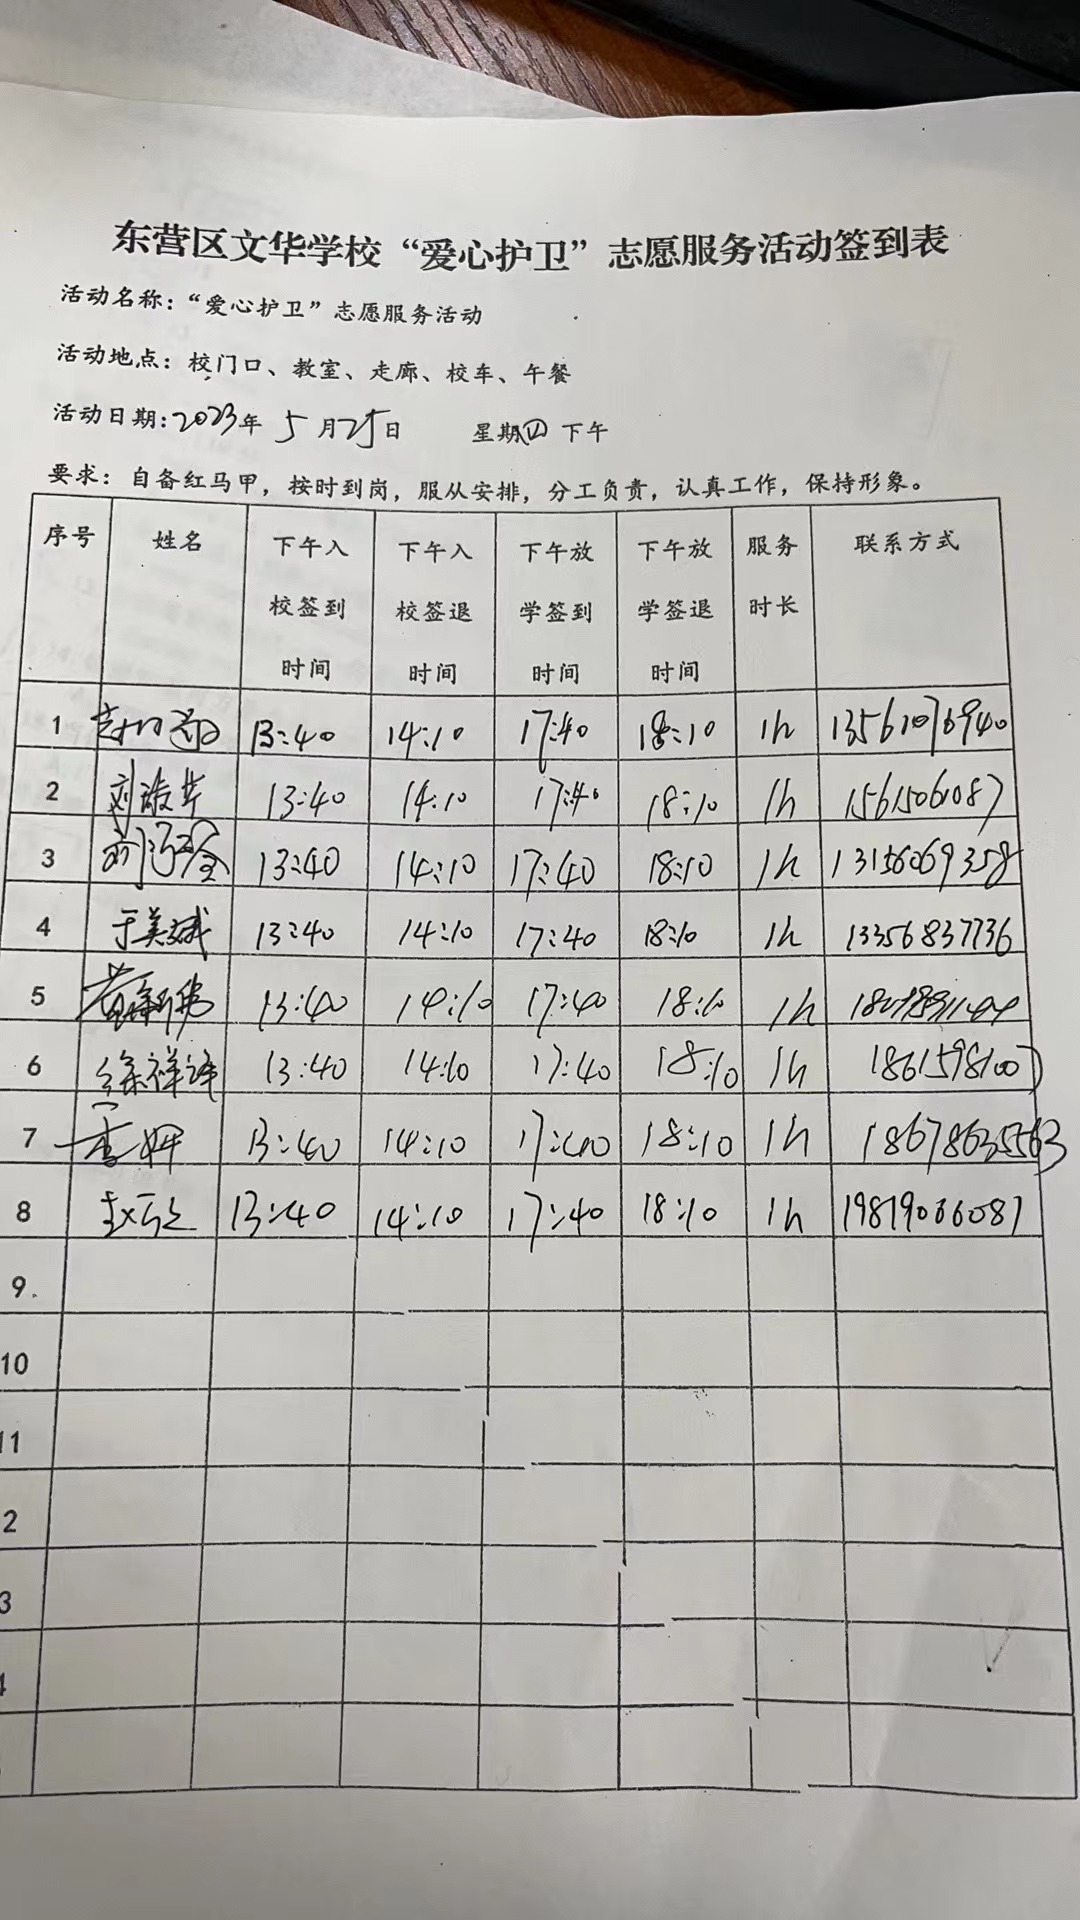 东营区文华学校“爱心护卫”志愿服务活动签到表
活动名称：“爱心护卫”志愿服务活动
活动地点：校门口、教室、走廊、校车、午餐
活动日期:2023年 5 月25日 星期四 下午
要求：自备红马甲，按时到岗，服从安排，分工负责，认真工作，保持形象。
序号 姓名 下午入校签到时间 下午入校签退时间 下午放学签到时间 下午放学签退时间 服务时长 联系方式
1 13:40 14:10 17:40 18:10 1h 13561076940
2 刘淑华 13:40 14:10 17:40 18:10 1h 15615061087
3 13:40 14:10 17:40 18:10 1h 13156069358
4 于美斌 13:40 14:10 17:40 18:10 1h 13356837736
5 13:40 14:10 17:40 18:10 1h
6 徐祥泽 13:40 14:10 17:40 18:10 1h 18615981007
7 李妍 13:40 14:10 17:40 18:10 1h 18678635563
8 13:40 14:10 17:40 18:10 1h 19819066081
9.
10
11
2
3
4